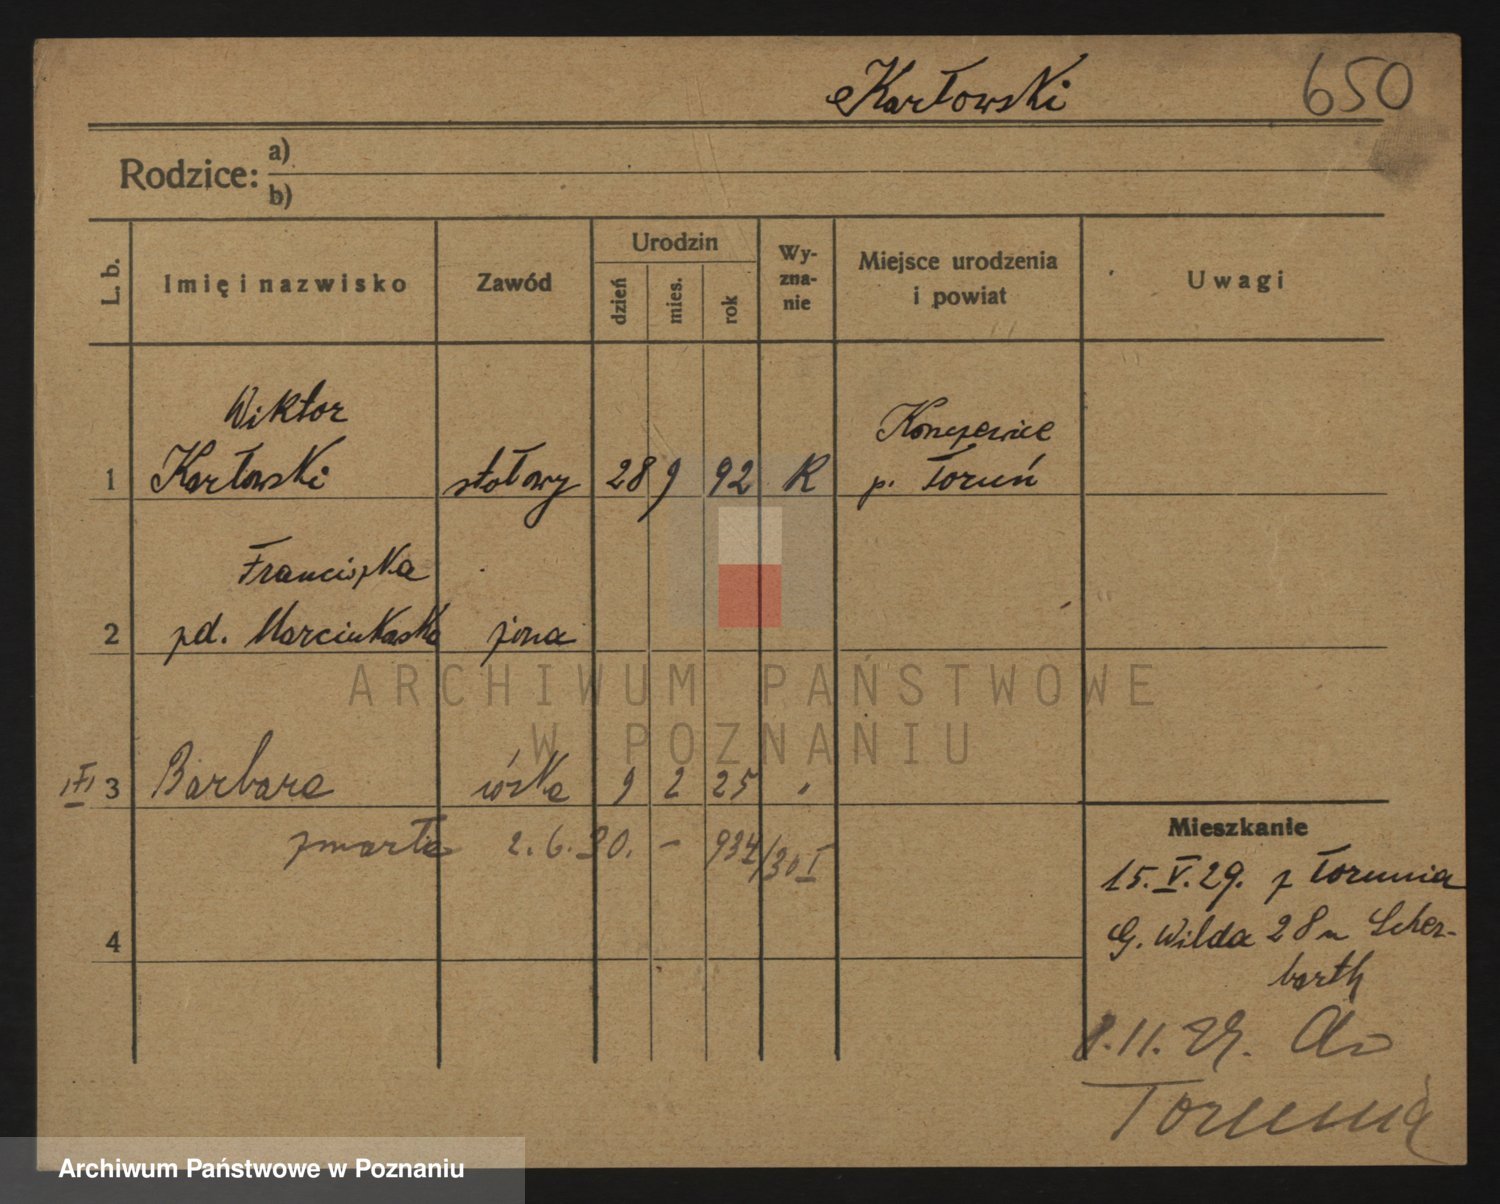 Karłowski 650
Rodzice: a)
b)
L. b. Imię i nazwisko Zawód Urodzin dzień mies. rok Wy-
zna-
nie Miejsce urodzenia
i powiat Uwagi
Wiktor
1 Karłowski stołowy 28 9 92 R Konczewice
p. Toruń
Franciszka
2 zd. Marcinkoska żona
3 Barbara córka 9 2 25 "
zmarła 2.6.30. – 934/30 I
4
Mieszkanie
15.V.29. z Torunia
G. Wilda 28 u Scher-
barth
8.11.29. do
Torunia
ARCHIWUM PAŃSTWOWE
W POZNANIU
Archiwum Państwowe w Poznaniu